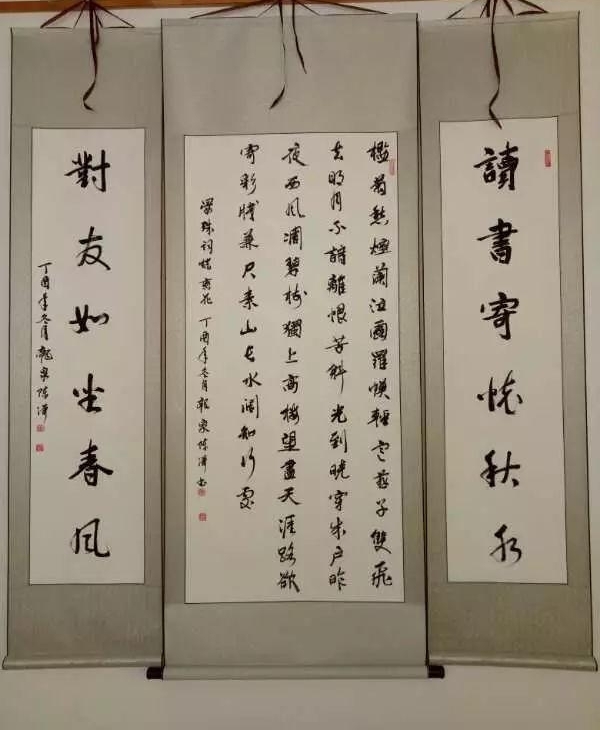 讀書寄懷秋水
檻菊愁煙蘭泣露羅幕輕寒燕子雙飛
去明月不諳離恨苦斜光到曉穿朱戶昨
夜西風凋碧樹獨上高樓望盡天涯路欲
寄彩牋兼尺素山長水闊知何處
晏殊詞蝶戀花 丁酉年冬月龍泉陳書
對友如坐春風
丁酉年冬月龍泉陳